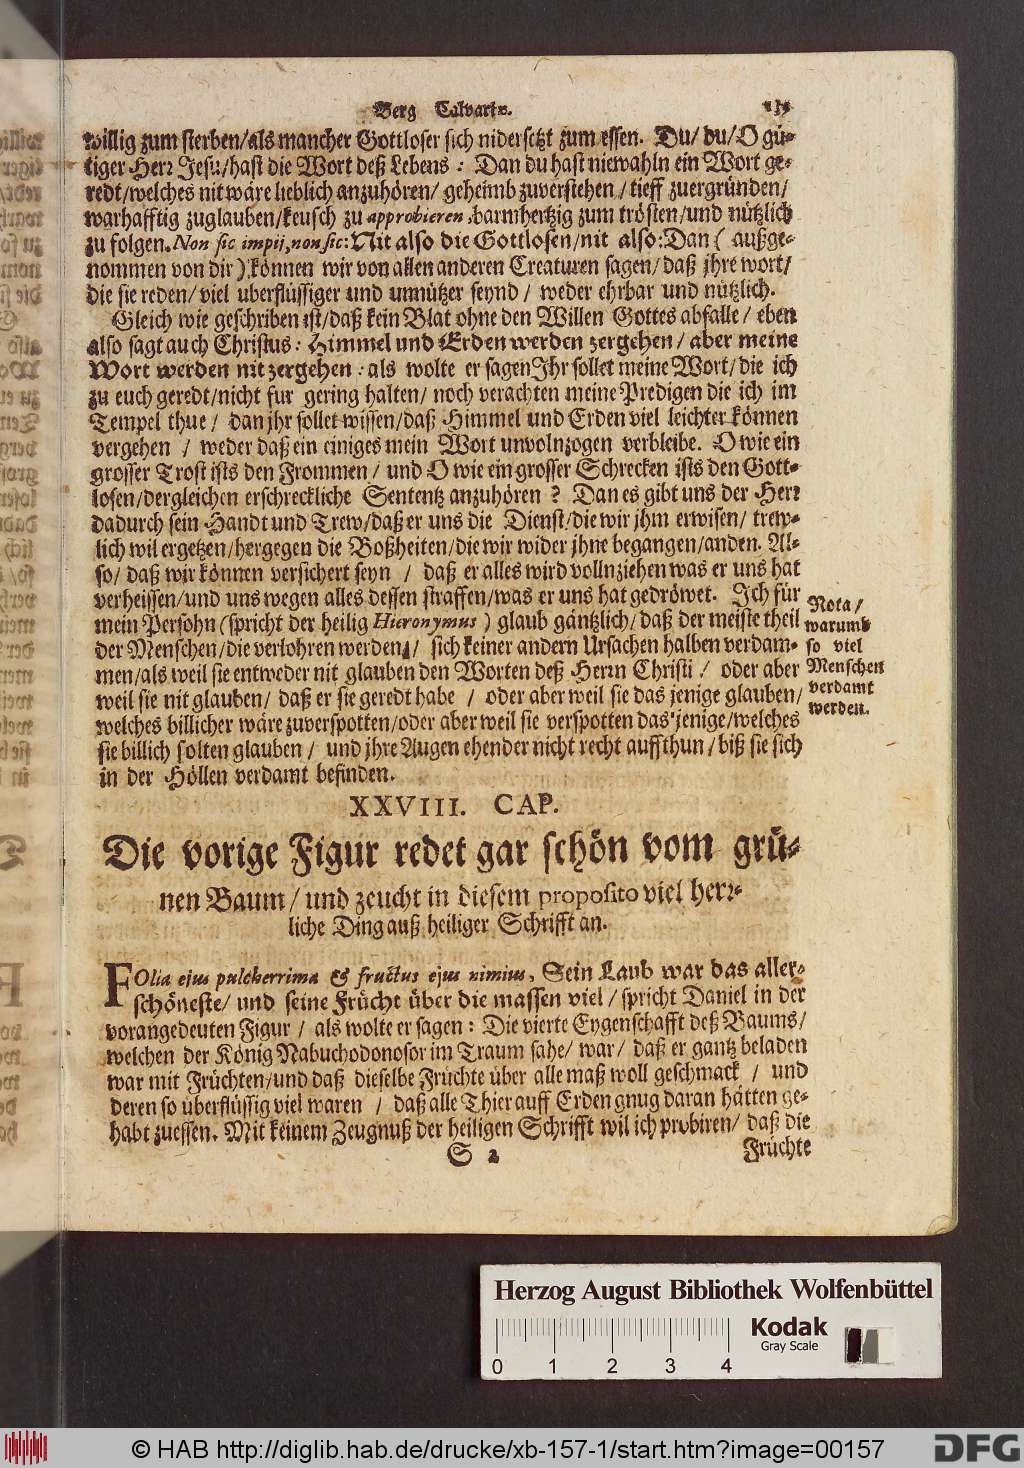 Berg Calvariæ.
willig zum sterben/als mancher Gottloser sich nidersetzt zum essen. Du/ du/ O gü-
tiger Herr Jesu/hast die Wort deß Lebens: Dan du hast niewahln ein Wort ge-
redt/welches nit wäre lieblich anzuhören/ geheimb zuverstehen/ tieff zuergründen/
warhafftig zuglauben/keusch zu approbieren, barmhertzig zum trösten/und nützlich
zu folgen. Non sic impij, non sic: Nit also die Gottlosen/nit also: Dan ( außge-
nommen von dir ) können wir von allen anderen Creaturen sagen/ daß jhre wort/
die sie reden/ viel uberflüssiger und unnützer seynd / weder ehrbar und nützlich.
Gleich wie geschriben ist/daß kein Blat ohne den Willen Gottes abfalle/ eben
also sagt auch Christus: Himmel und Erden werden zergehen/ aber meine
Wort werden nit zergehen: als wolte er sagen Ihr sollet meine Wort/ die ich
zu euch geredt/nicht fur gering halten/ noch verachten meine Predigen die ich im
Tempel thue/ dan jhr sollet wissen/daß Himmel und Erden viel leichter können
vergehen / weder daß ein einiges mein Wort unvolnzogen verbleibe. O wie ein
grosser Trost ists den Frommen/ und O wie ein grosser Schrecken ists den Gott-
losen/dergleichen erschreckliche Sententz anzuhören? Dan es gibt uns der Herr
dadurch sein Handt und Trew/daß er uns die Dienst/die wir jhm erwisen/ trew-
lich wil ergetzen/hergegen die Boßheiten/die wir wider jhne begangen/anden. Al-
so/ daß wir können versichert seyn / daß er alles wird vollnziehen was er uns hat
verheissen/und uns wegen alles dessen straffen/was er uns hat gedröwet. Ich für
mein Persohn (spricht der heilig Hieronymus) glaub gäntzlich/daß der meiste theil
der Menschen/die verlohren werden/ sich keiner andern Ursachen halben verdam-
men/als weil sie entweder nit glauben den Worten deß Herrn Christi/ oder aber
weil sie nit glauben/ daß er sie geredt habe / oder aber weil sie das jenige glauben/
welches billicher wäre zuverspotten/oder aber weil sie verspotten das jenige/welches
sie billich solten glauben/ und jhre Augen ehender nicht recht auffthun/biß sie sich
in der Höllen verdamt befinden.
Nota/
warumb
so viel
Menschen
verdamt
werden.
XXVIII. CAP.
Die vorige Figur redet gar schön vom grü-
nen Baum/ und zeucht in diesem proposito viel herr-
liche Ding auß heiliger Schrifft an.
FOlia ejus pulcherrima & fructus ejus nimius, Sein Laub war das aller-
schöneste/ und seine Frücht über die massen viel/ spricht Daniel in der
vorangedeuten Figur/ als wolte er sagen: Die vierte Eygenschafft deß Baums/
welchen der König Nabuchodonosor im Traum sahe/ war/ daß er gantz beladen
war mit Früchten/und daß dieselbe Früchte über alle maß woll geschmack / und
deren so überflüssig viel waren / daß alle Thier auff Erden gnug daran hätten ge-
habt zuessen. Mit keinem Zeugnuß der heiligen Schrifft wil ich probiren/ daß die
S 2 Früchte
Herzog August Bibliothek Wolfenbüttel
0 1 2 3 4
Kodak
Gray Scale
© HAB http://diglib.hab.de/drucke/xb-157-1/start.htm?image=00157
DFG